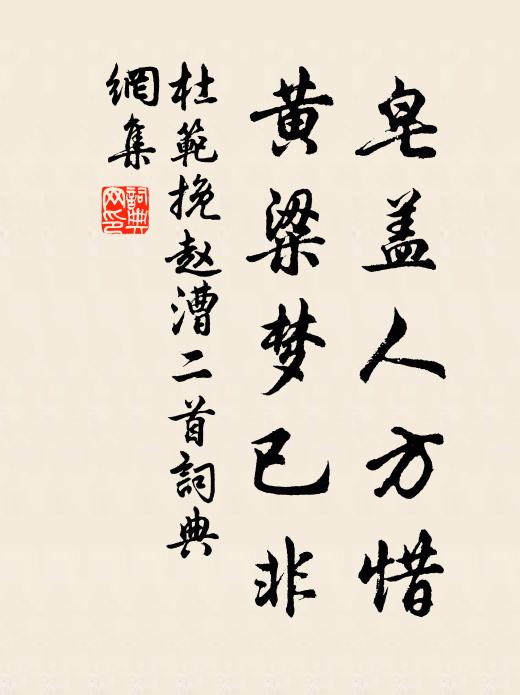 皂盖人方惜
黄梁梦已非
杜範挽赵漕二首詞典
網集
詞典
网印